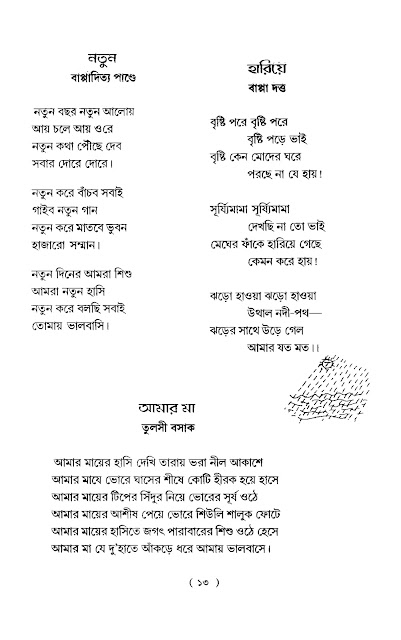 নতুন
বাপ্পাদিত্য পাণ্ডে
নতুন বছর নতুন আলোয়
আয় চলে আয় ওরে
নতুন কথা পৌঁছে দেব
সবার দোরে দোরে।
নতুন করে বাঁচব সবাই
গাইব নতুন গান
নতুন করে মাতবে ভুবন
হাজারো সম্মান।
নতুন দিনের আমরা শিশু
আমরা নতুন হাসি
নতুন করে বলছি সবাই
তোমায় ভালবাসি।
হারিয়ে
বাপ্পা দত্ত
বৃষ্টি পরে বৃষ্টি পরে
বৃষ্টি পড়ে ভাই
বৃষ্টি কেন মোদের ঘরে
পরছে না যে হায়!
সূর্য্যিমামা সূর্য্যিমামা
দেখছি না তো ভাই
মেঘের ফাঁকে হারিয়ে গেছে
কেমন করে হায়!
ঝড়ো হাওয়া ঝড়ো হাওয়া
উথাল নদী-পথ—
ঝড়ের সাথে উড়ে গেল
আমার যত মত।।
আমার মা
তুলসী বসাক
আমার মায়ের হাসি দেখি তারায় ভরা নীল আকাশে
আমার মাযে ভোরে ঘাসের শীষে কোটি হীরক হয়ে হাসে
আমার মায়ের টিপের সিঁদুর নিয়ে ভোরের সূর্য ওঠে
আমার মায়ের আশীষ পেয়ে ভোরে শিউলি শালুক ফোটে
আমার মায়ের হাসিতে জগৎ পারাবারের শিশু ওঠে হেসে
আমার মা যে দু'হাতে আঁকড়ে ধরে আমায় ভালবাসে।
( ১৩ )